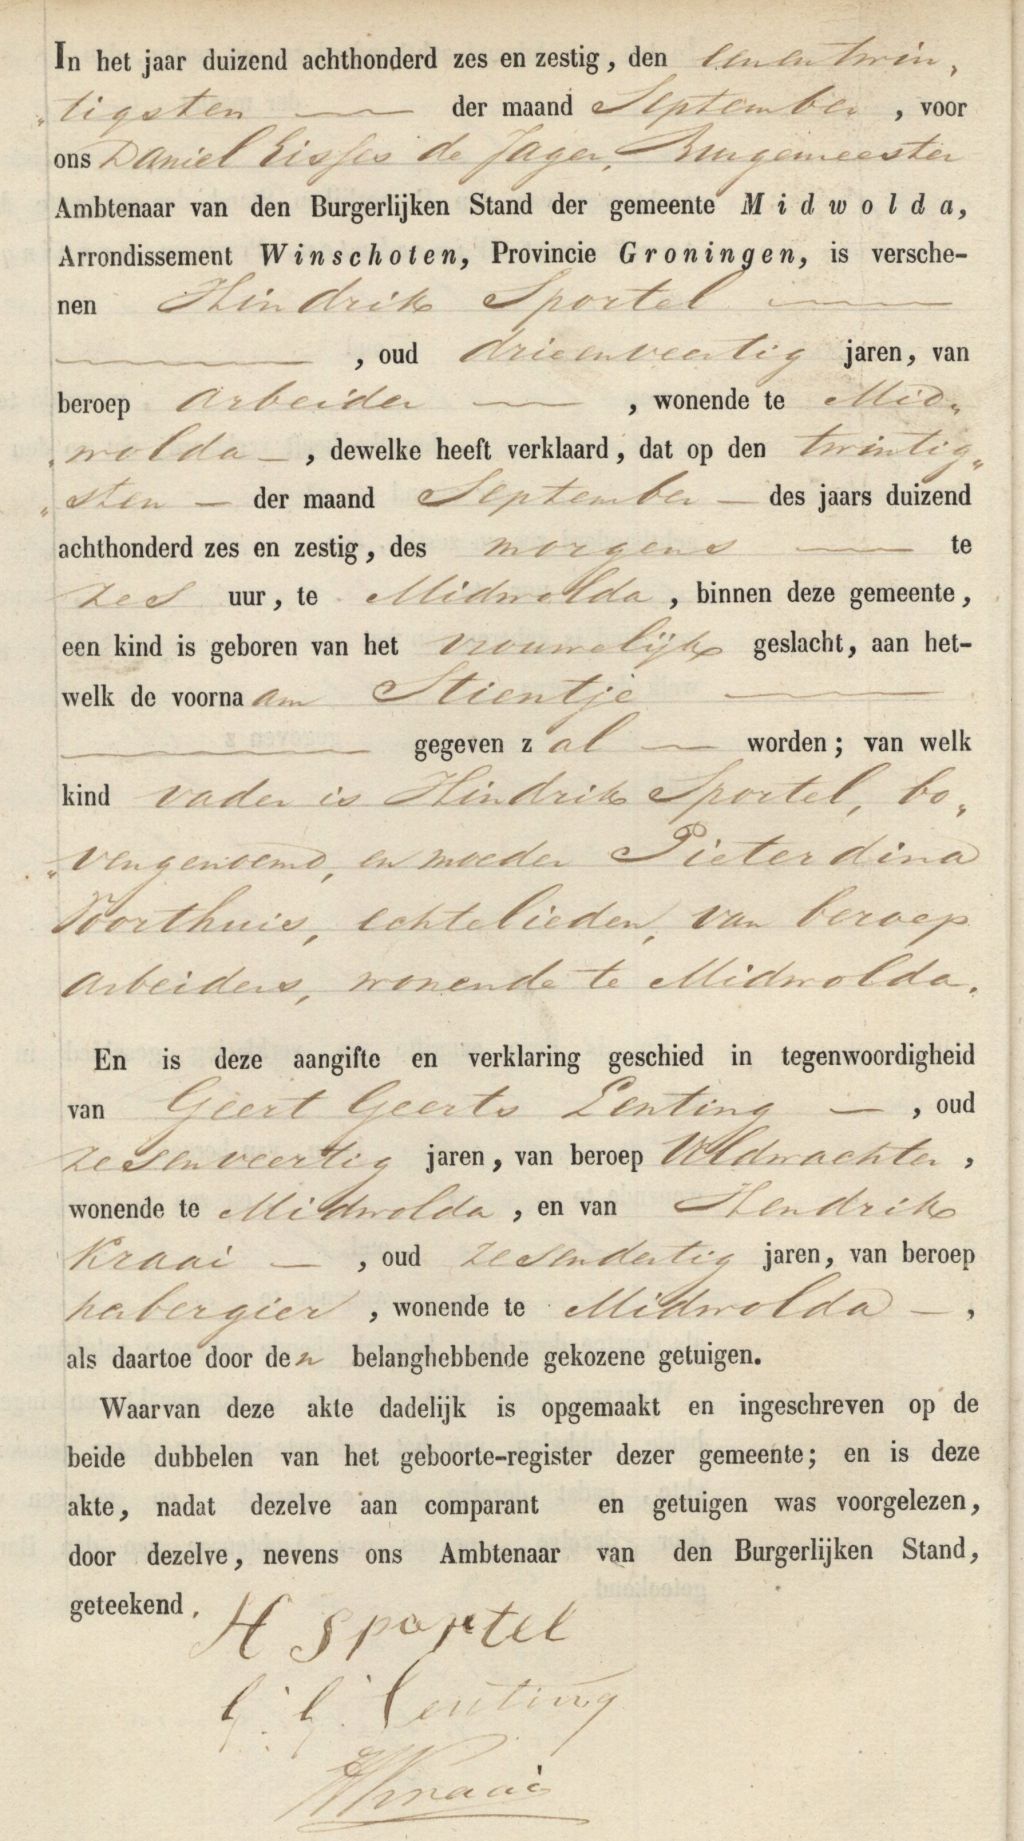 In het jaar duizend achthonderd zes en zestig, den eenentwin„
„tigsten — der maand September, voor
ons Daniel Eisses de Jager, Burgemeester
Ambtenaar van den Burgerlijken Stand der gemeente Midwolda,
Arrondissement Winschoten, Provincie Groningen, is versche-
nen Hindrik Sportel —
—, oud drieenveertig jaren, van
beroep arbeider —, wonende te Mid„
„wolda —, dewelke heeft verklaard, dat op den twintig„
„sten — der maand September — des jaars duizend
achthonderd zes en zestig, des morgens — te
zes uur, te Midwolda, binnen deze gemeente,
een kind is geboren van het vrouwelijk geslacht, aan het-
welk de voornaam Stientje —
— gegeven zal — worden; van welk
kind vader is Hindrik Sportel, bo„
„vengenoemd, en moeder Pieterdina
Voorthuis, echtelieden, van beroep
arbeiders, wonende te Midwolda.
En is deze aangifte en verklaring geschied in tegenwoordigheid
van Geert Geerts Lenting —, oud
zesenveertig jaren, van beroep Veldwachter,
wonende te Midwolda, en van Hendrik
Kraai —, oud zesendertig jaren, van beroep
herbergier, wonende te Midwolda —,
als daartoe door den belanghebbende gekozene getuigen.
Waarvan deze akte dadelijk is opgemaakt en ingeschreven op de
beide dubbelen van het geboorte-register dezer gemeente; en is deze
akte, nadat dezelve aan comparant en getuigen was voorgelezen,
door dezelve, nevens ons Ambtenaar van den Burgerlijken Stand,
geteekend.
H Sportel
G. G. Lenting
H Kraai